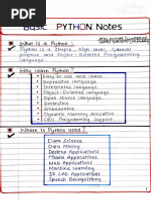 Basic PYTHON Notes
What is a Python :
Python is a Simple, high level, General
purpose and Object-Oriented Programming
language.
Why learn Python?
Easy to use and Learn
Expressive Language
Interpreted Language
Object-Oriented Language
Open Source Language
Extensible
Dynamic Memory Allocation
GUI Programming Support
Where is Python used?
Data Science
Data Mining
Desktop Applications
Mobile Applications
Web Applications
Machine Learning
3D CAD Applications
Speech Recognitions